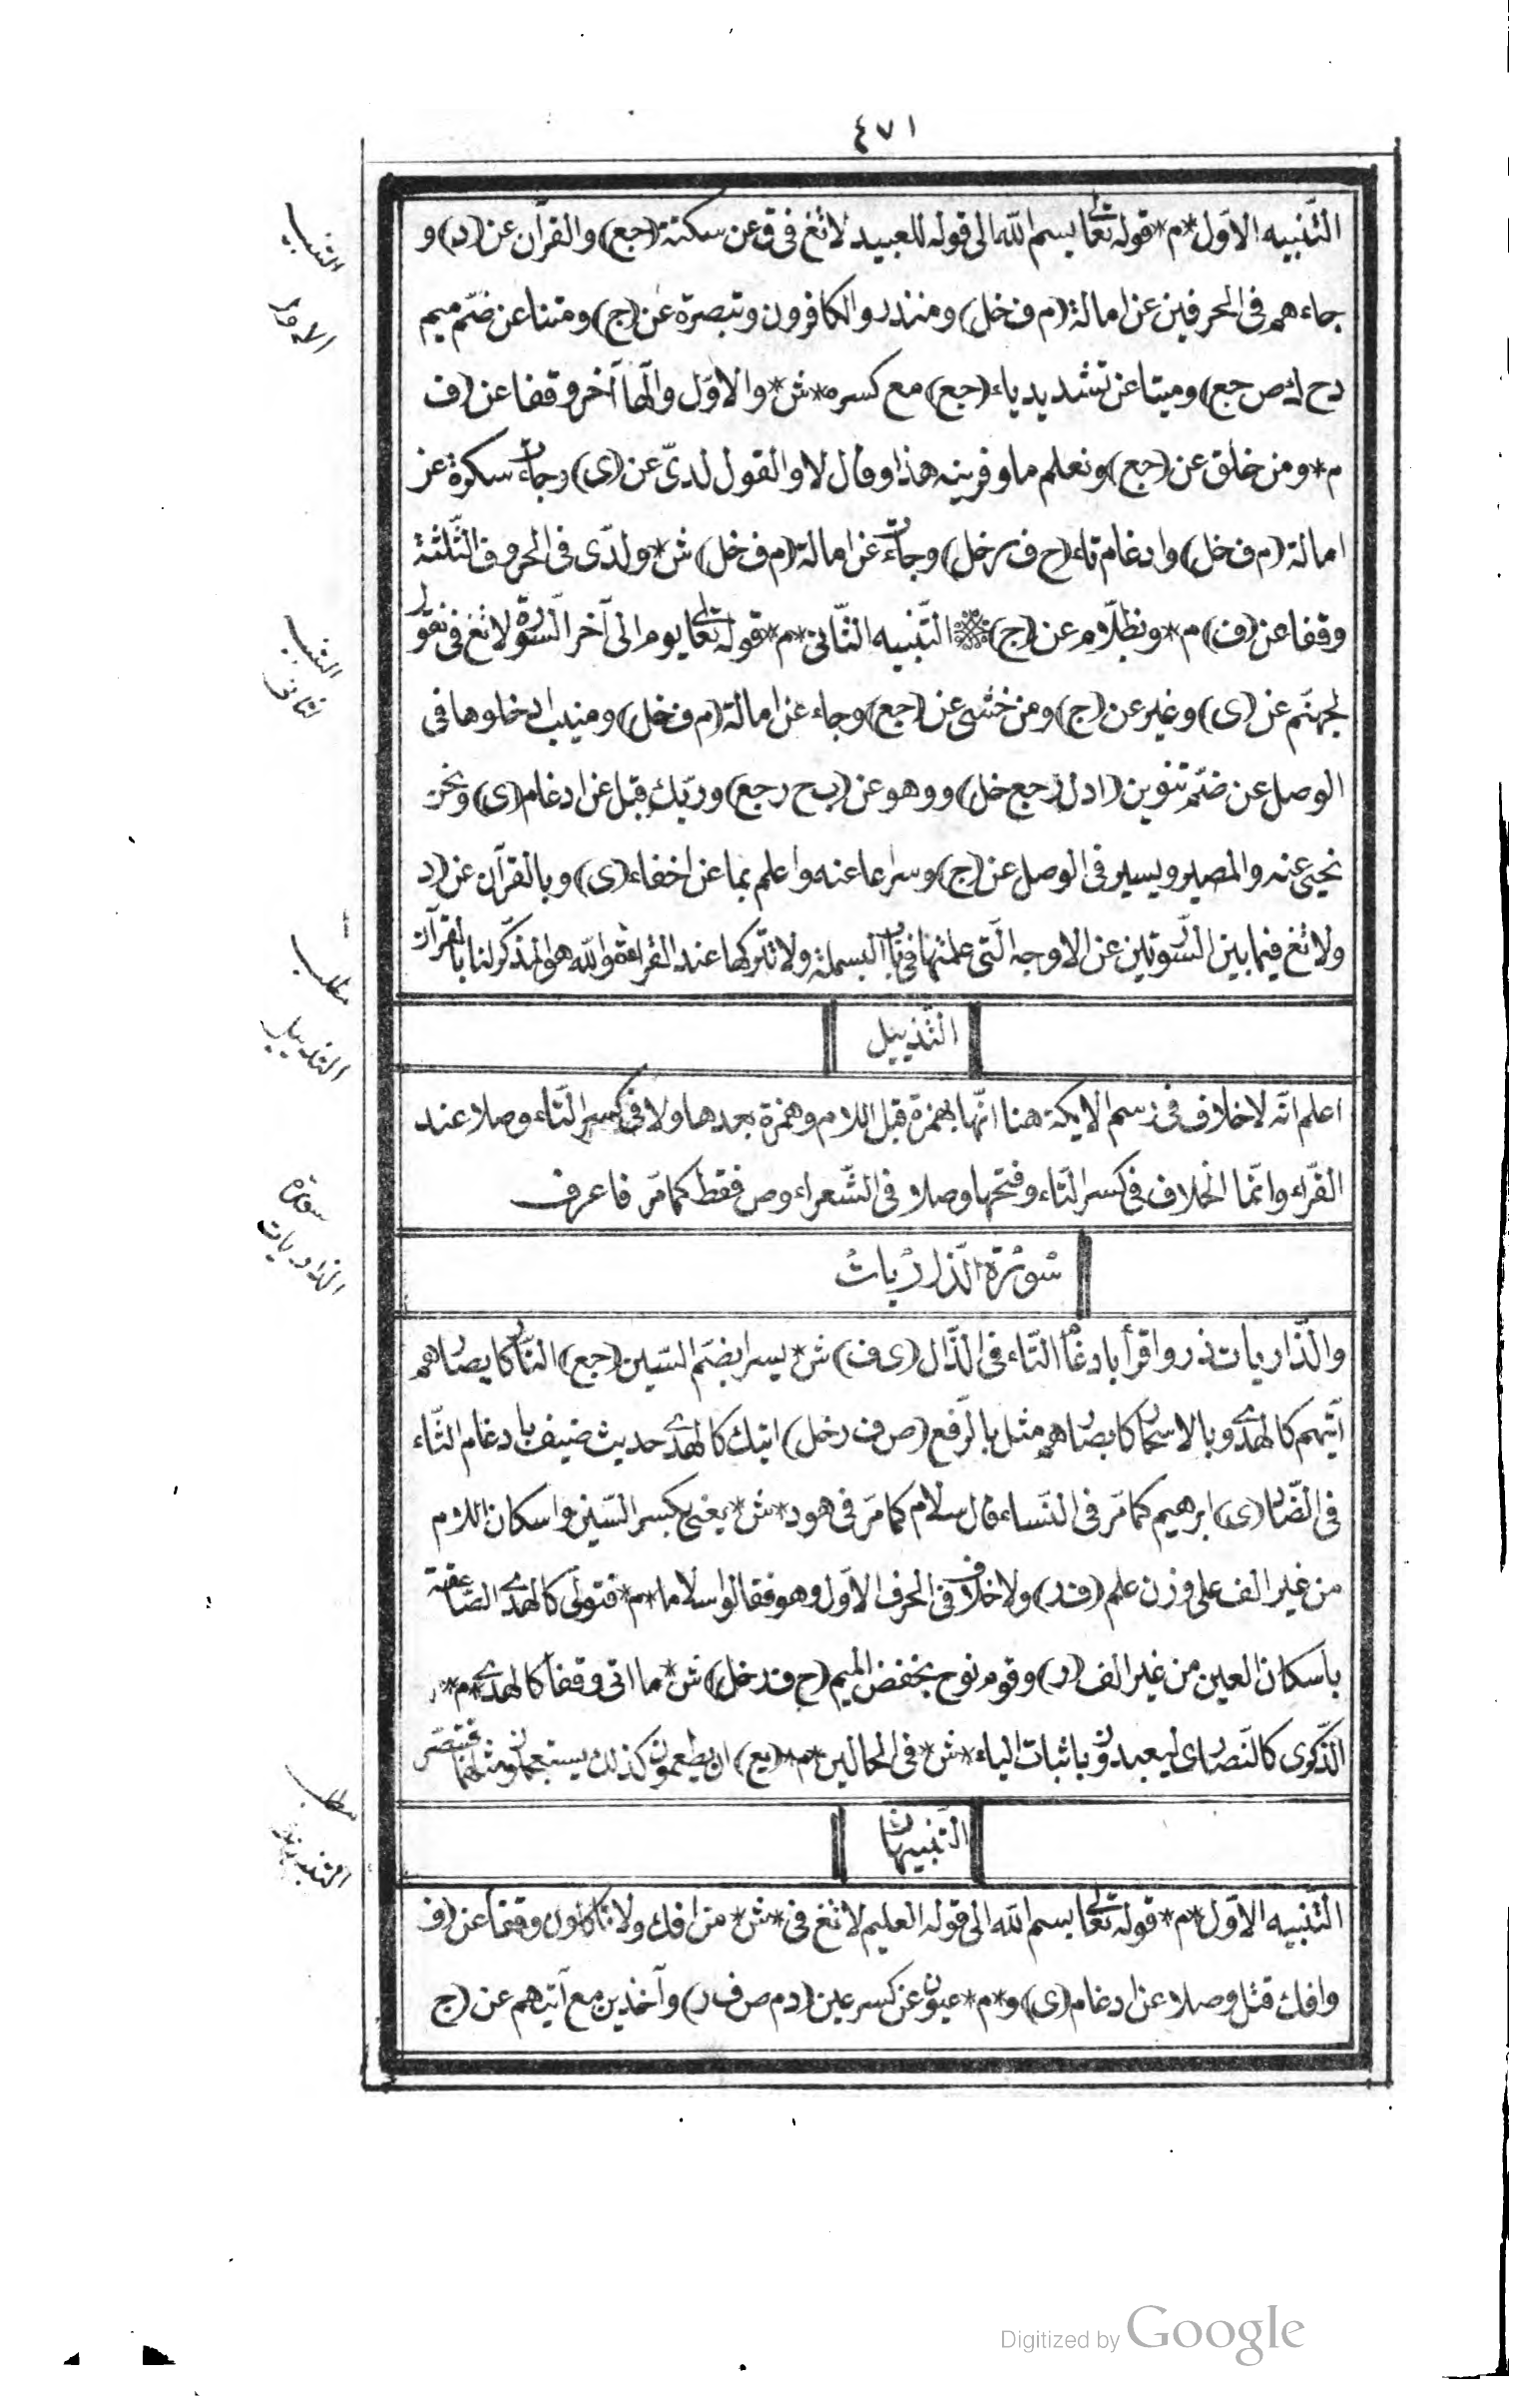 ٤٧١
التّنبيه الاوّل*م*قوله تعالى بسم الله الى قوله للعبيد لا تغ فى ق عن سكتة (جع) والقرآن عن (د) و
جاءهم فى الحرفين عن امالة (م ف خل) ومنذر والكافرون وتبصرة عن (ج) ومتنا عن ضمّ ميم
(د ح ك ص جع) وميتا عن تشديد ياء (جع) مع كسره*ش*والاوّل والها آخر وقفا عن (ف
م*ومن خلق عن (جع) ونعلم ما وقرينه هذا وقال لا والقول لدىّ عن (ى) وجاءت سكرة عن
امالة (م ف خل) وادغام تاء (ح ف ر خل) وجاءت عن امالة (م ف خل) ش*ولدّى فى الحروف الثّلثة
وقفا عن (ف) م*وبظلّام عن (ج) التّنبيه الثّانى*م*قوله تعالى يوم الى آخر السّورة لا تغ فى نقول
لجهنّم عن (ى) وغير عن (ج) ومن خشى عن (جع) وجاء عن امالة (م ف خل) ومنيب ادخلوها فى
الوصل عن ضمّ تنوين (ا د ل ر جع خل) ووهو عن (ب ح ر جع) وربّك قبل عن ادغام (ى) ونحن
نحيى عنه والمصير ويسير فى الوصل عن (ج) وسراعا عنه واعلم بما عن اخفاء (ى) وبالقرآن عن (د
ولا تغ فيما بين السّورتين عن الاوجه الّتى علمتها فى باب البسملة ولا تتركها عند القراءة والله هو المذكّر لنا بالقرآن
التّذييل
اعلم انّه لا خلاف فى رسم الايكة هنا انّها بهمزة قبل اللام وهمزة بعدها ولا فى كسر التّاء وصلا عند
القرّاء وانّما الخلاف فى كسر التّاء وفتحها وصلا فى الشّعراء وص فقط كما مرّ فاعرف
سُورَة الذّارِيَات
والذّاريات ذروا قرأ بادغام التّاء فى الذّال (ى ف) ش*يسرا بضمّ السّين (جع) النّار كابصارهم
آتيهم كالهدى وبالاسحار كابصارهم مثل بالرّفع (ص ف ر خل) اتيك كالهدى حديث ضيف بادغام الثّاء
فى الضّاد (ى) ابرهيم كما مرّ فى النّساء قال سلام كما مرّ فى هود*ش*يعنى بكسر السّين واسكان اللام
من غير الف على وزن علم (ف ر) ولا خلاف فى الحرف الاوّل وهو فقالوا سلاما*م*فتولّى كالهدى الصّاعقة
باسكان العين من غير الف (ر) وقوم نوح بخفض الميم (ح ف ر خل) ش*ما اتى وقفا كالهدى*م*
الذّكرى كالنّصارى ليعبدون باثبات الياء*ش*فى الحالين*م*(يع) ان يطعمون كذلك يستعجلون مثلهما
التّنبيهان
التّنبيه الاوّل*م*قوله تعالى بسم الله الى قوله العليم لا تغ فى*ش*من افك ولا تأكلون وقفا عن (ف
وافك قتل وصلا عن ادغام (ى) و*م*عيون عن كسر عين (د م ص ف ر) وآخذين مع آتيهم عن (ج
التنبيه
الاول
التنبيه
الثانى
مطلب
التذييل
سورة
الذاريات
مطلب
التنبيهان
Digitized by Google